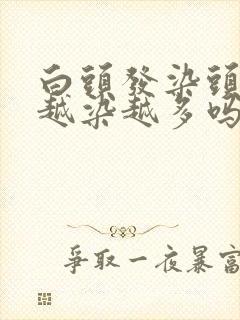 白頭發染頭
越染越多嗎
爭取一夜暴富